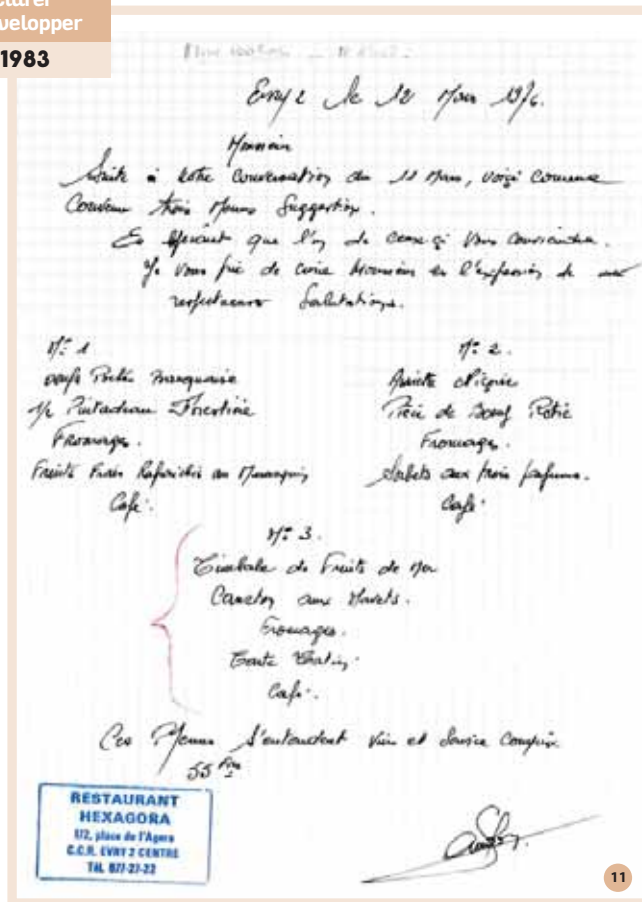 velopper
1983
Evry 2 le 12 Mars 1976.
Monsieur
Suite à notre conversation du 11 Mars, voici comme
Convenu trois Menus Suggestion.
En espérant que l'un de ceux ci vous conviendra.
Je vous prie de croire Monsieur en l'expression de
respectueuses Salutations.
N° 1
oeufs Pochés
1/2 Pintadeau Forestine
Fromages.
Fruits Frais Rafraichis au
Café.
N° 2.
Assiette Niçoise
Pièce de Boeuf Rotie
Fromages.
Sorbets aux trois parfums.
Café.
N° 3.
Timbale de Fruits de Mer
Caneton aux Navets.
Fromages.
Tarte Tatin.
Café.
Ces Menus s'entendent vin et Service Compris
55 Frs
RESTAURANT
HEXAGORA
1/2, place de l'Agora
C.C.R. EVRY 2 CENTRE
Tél. 077-27-22
11